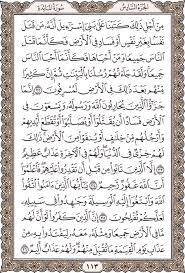 الجزء السادس سورة المائدة
مِنْ أَجْلِ ذَٰلِكَ كَتَبْنَا عَلَىٰ بَنِي إِسْرَٰٓءِيلَ أَنَّهُۥ مَن قَتَلَ
نَفْسًا بِغَيْرِ نَفْسٍ أَوْ فَسَادٍ فِي ٱلْأَرْضِ فَكَأَنَّمَا قَتَلَ
ٱلنَّاسَ جَمِيعًا وَمَنْ أَحْيَاهَا فَكَأَنَّمَآ أَحْيَا ٱلنَّاسَ
جَمِيعًا وَلَقَدْ جَآءَتْهُمْ رُسُلُنَا بِٱلْبَيِّنَٰتِ ثُمَّ إِنَّ كَثِيرًا
مِّنْهُم بَعْدَ ذَٰلِكَ فِي ٱلْأَرْضِ لَمُسْرِفُونَ ٣٢ إِنَّمَا جَزَٰٓؤُا۟
ٱلَّذِينَ يُحَارِبُونَ ٱللَّهَ وَرَسُولَهُۥ وَيَسْعَوْنَ فِي
ٱلْأَرْضِ فَسَادًا أَن يُقَتَّلُوٓا۟ أَوْ يُصَلَّبُوٓا۟ أَوْ تُقَطَّعَ أَيْدِيهِمْ
وَأَرْجُلُهُم مِّنْ خِلَٰفٍ أَوْ يُنفَوْا۟ مِنَ ٱلْأَرْضِ ذَٰلِكَ
لَهُمْ خِزْيٌ فِي ٱلدُّنْيَا وَلَهُمْ فِي ٱلْءَاخِرَةِ عَذَابٌ عَظِيمٌ ٣٣
إِلَّا ٱلَّذِينَ تَابُوا۟ مِن قَبْلِ أَن تَقْدِرُوا۟ عَلَيْهِمْ فَٱعْلَمُوٓا۟
أَنَّ ٱللَّهَ غَفُورٌ رَّحِيمٌ ٣٤ يَٰٓأَيُّهَا ٱلَّذِينَ ءَامَنُوا۟ ٱتَّقُوا۟
ٱللَّهَ وَٱبْتَغُوٓا۟ إِلَيْهِ ٱلْوَسِيلَةَ وَجَٰهِدُوا۟ فِي سَبِيلِهِۦ
لَعَلَّكُمْ تُفْلِحُونَ ٣٥ إِنَّ ٱلَّذِينَ كَفَرُوا۟ لَوْ أَنَّ لَهُم
مَّا فِي ٱلْأَرْضِ جَمِيعًا وَمِثْلَهُۥ مَعَهُۥ لِيَفْتَدُوا۟ بِهِۦ مِنْ
عَذَابِ يَوْمِ ٱلْقِيَٰمَةِ مَا تُقُبِّلَ مِنْهُمْ وَلَهُمْ عَذَابٌ أَلِيمٌ ٣٦
١١٣